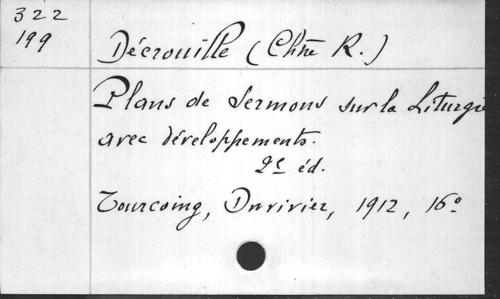 322
199
Décrouille (Chne R.)
Plans de Sermons sur la Liturgie
avec développements.
2e éd.
Tourcoing, Duvivier, 1912, 16o